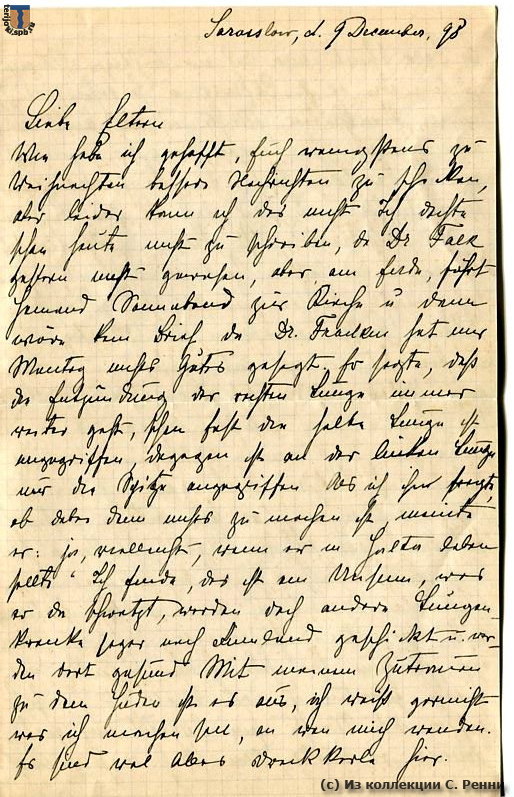 terijoki.spb.ru
d. 9 December, 98
Liebe Eltern
Wie habe ich gehofft, Euch wenigstens zu
Weihnachten bessere Nachrichten zu schicken,
aber leider kann ich das nicht Ich dachte
schon heute nicht zu schreiben, da Dr. Falk
gestern nicht gewesen, aber am Ende, fährt
Jemand Sonnabend zur Kirche u dann
wäre kein Brief da Dr. hat mir
Montag nichts Guts gesagt. Er sagte, daß
die Entzündung der rechten Lunge immer
weiter geht, schon fast die halbe Lunge ist
angegriffen, dagegen ist an der linken Lunge
nur die Spitze angegriffen Als ich ihn fragte,
ob dabei denn nichts zu machen ist, meinte
er: ja, vielleicht, wenn er in Jalta leben
sollte" Ich finde, das ist ein Unsinn, was
er da schwatzt, werden doch andere Lungen-
kranke sogar nach Finnland geschickt u. wer-
den dort gesund Mit meinem Zutrauen
zu dem Juden ist es aus, ich weiß garnicht
was ich machen soll, an wen mich wenden.
Es sind wol alles hier.
(c) Из коллекции С. Ренни